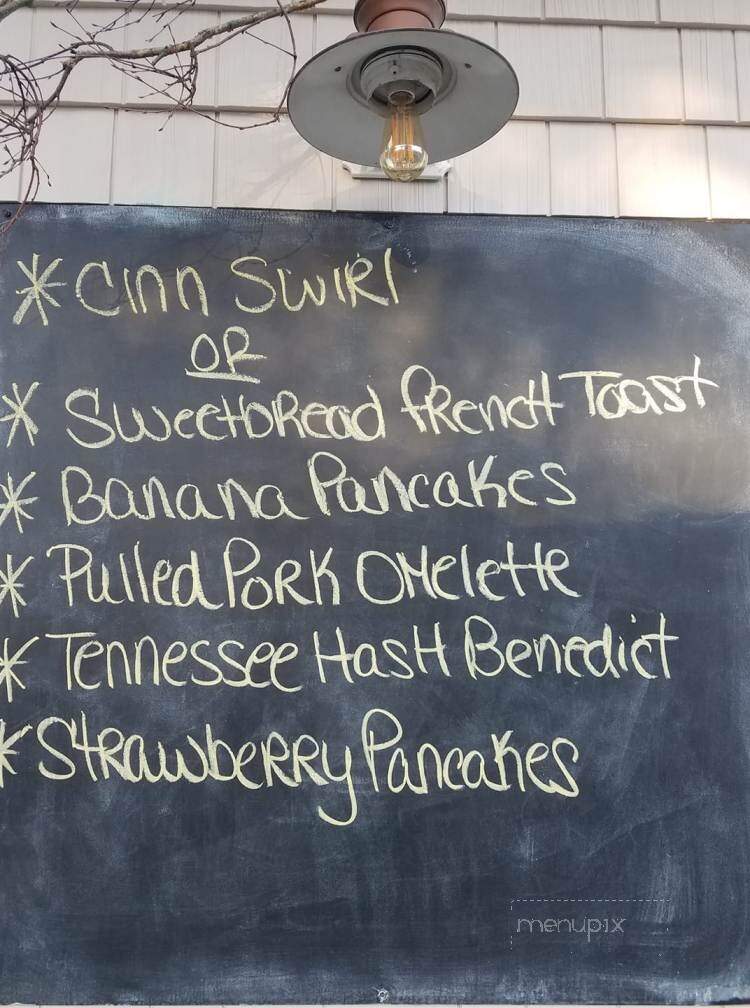 * Cinn Swirl
OR
* Sweetbread French Toast
* Banana Pancakes
* Pulled Pork Omelette
* Tennessee Hash Benedict
* Strawberry Pancakes
menupix